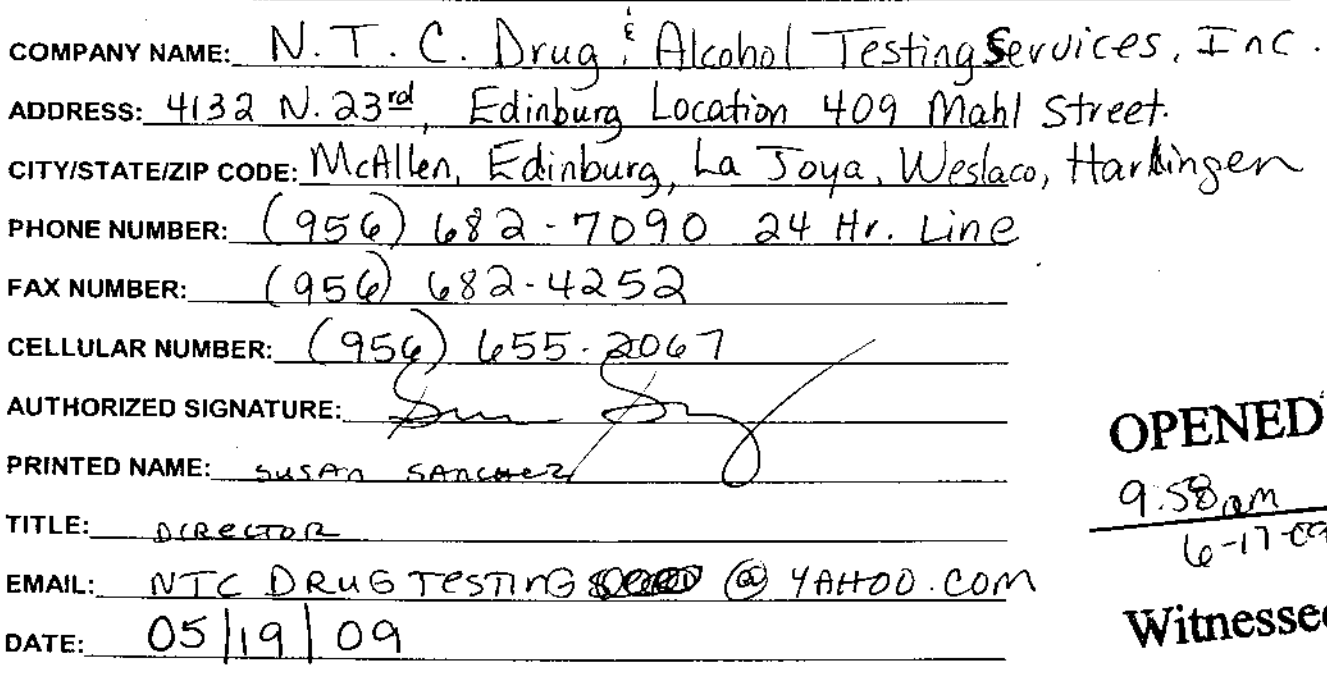 COMPANY NAME: N.T.C. Drug & Alcohol Testing Services, Inc.
ADDRESS: 4132 N. 23rd, Edinburg Location 409 Mahl Street.
CITY/STATE/ZIP CODE: McAllen, Edinburg, La Joya, Weslaco, Harlingen
PHONE NUMBER: (956) 682-7090 24 Hr. Line
FAX NUMBER: (956) 682-4252
CELLULAR NUMBER: (956) 655-2067
AUTHORIZED SIGNATURE:
PRINTED NAME: SUSAN SANCHEZ
OPENED
TITLE: DIRECTOR
9:58am
6-17-09
EMAIL: NTC DRUG TESTING @ YAHOO.COM
DATE: 05|19|09
Witnessed